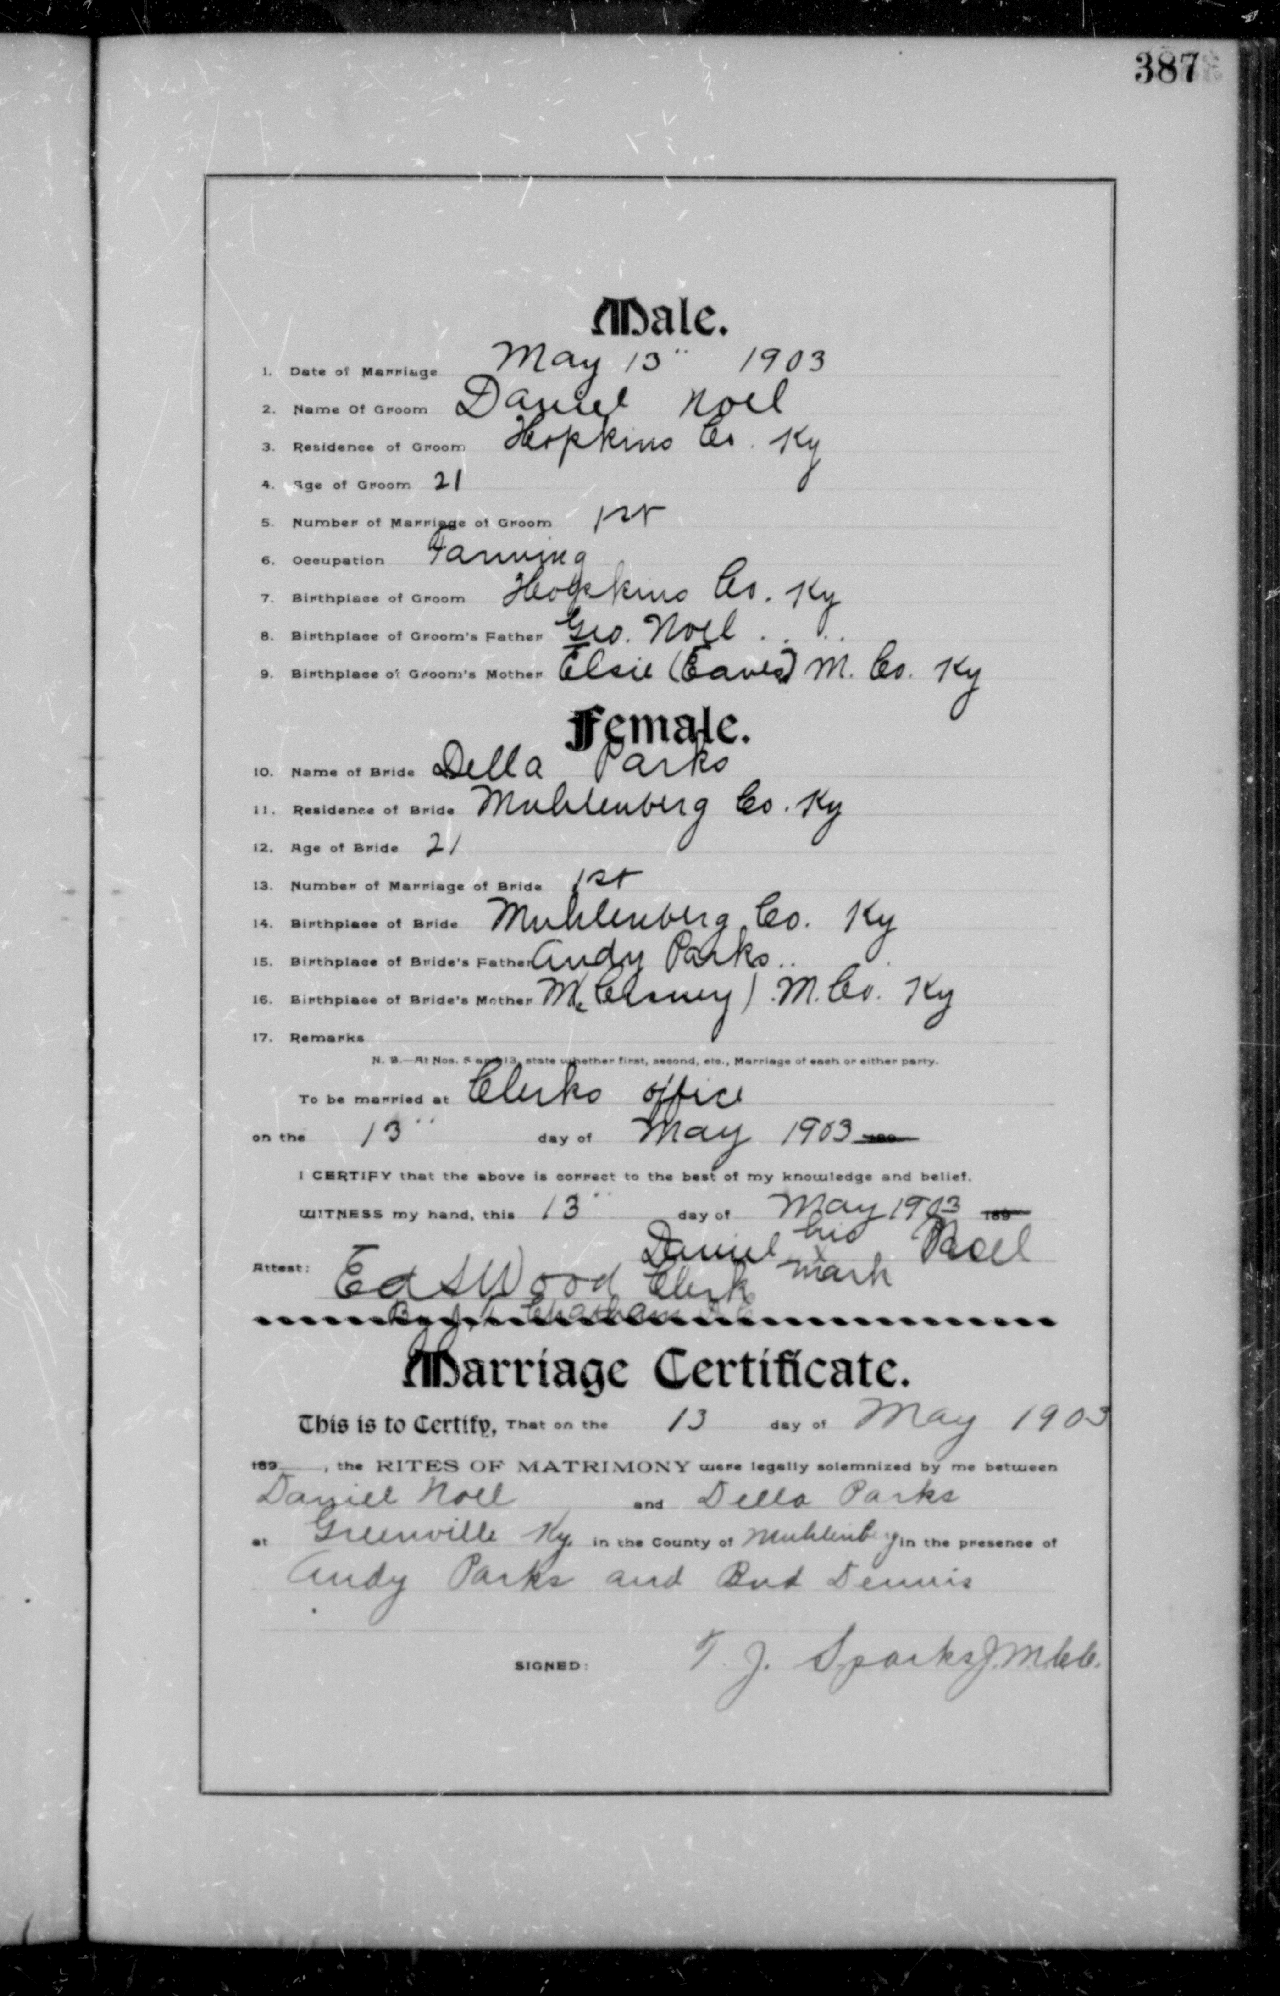 387
Male.
1. Date of Marriage May 13" 1903
2. Name Of Groom Daniel Noel
3. Residence of Groom Hopkins Co. Ky
4. Age of Groom 21
5. Number of Marriage of Groom 1st
6. Occupation Farming
7. Birthplace of Groom Hopkins Co. Ky
8. Birthplace of Groom's Father Geo. Noel . . . .
9. Birthplace of Groom's Mother Elsie (Eaves) M. Co. Ky
Female.
10. Name of Bride Della Parks
11. Residence of Bride Muhlenberg Co. Ky
12. Age of Bride 21
13. Number of Marriage of Bride 1st
14. Birthplace of Bride Muhlenberg Co. Ky
15. Birthplace of Bride's Father Andy Parks . .
16. Birthplace of Bride's Mother ) M. Co. Ky
17. Remarks
N. B.—At Nos. 5 and 13, state whether first, second, etc., Marriage of each or either party.
To be married at Clerks office
on the 13" day of May 1903
I CERTIFY that the above is correct to the best of my knowledge and belief.
WITNESS my hand, this 13" day of May 1903 189
Daniel his x mark Noel
Attest: Ed S Wood Clerk
By Chatham D C
Marriage Certificate.
This is to Certify, That on the 13 day of May 1903
189__, the RITES OF MATRIMONY were legally solemnized by me between
Daniel Noel and Della Parks
at Greenville Ky. in the County of Muhlenberg in the presence of
Andy Parks and Bud Dennis
SIGNED: T. J. Sparks J.M.C.C.